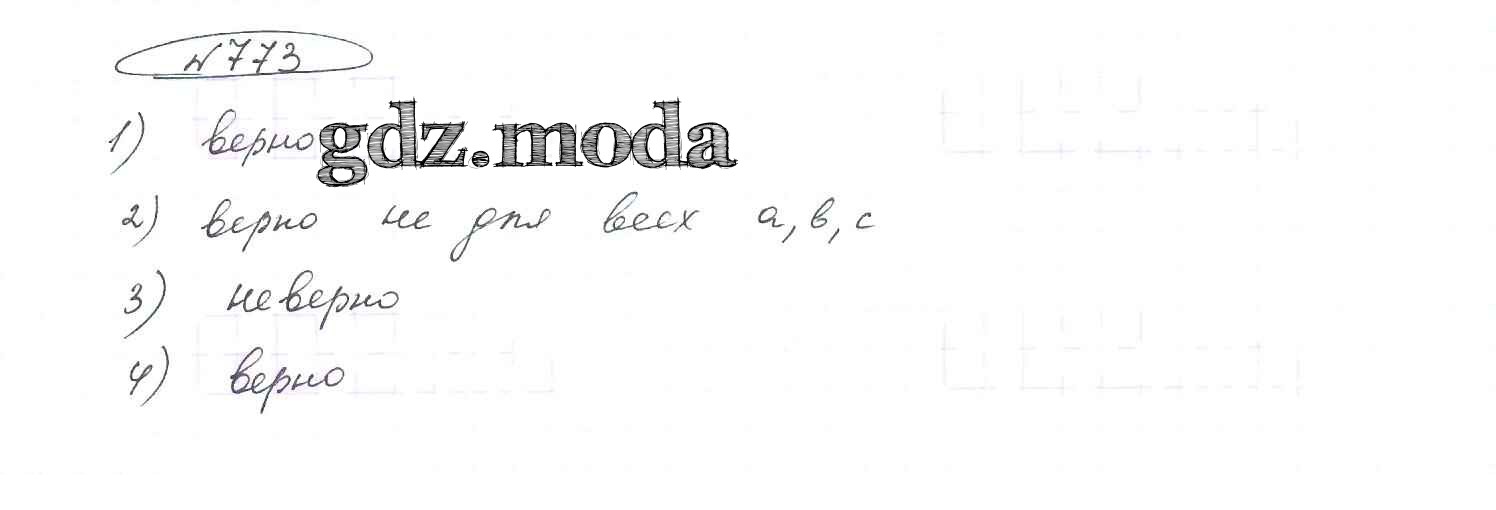 №773
1) верно gdz.moda
2) верно не для всех а, в, с
3) неверно
4) верно